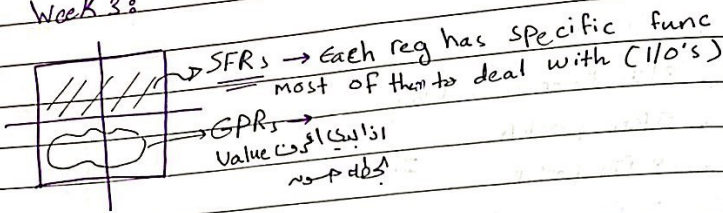 Week 3:
SFRs → Each reg has specific func
most of them to deal with (I/O's)
GPRs →
اذا بدي اخزن value
بحطه هون